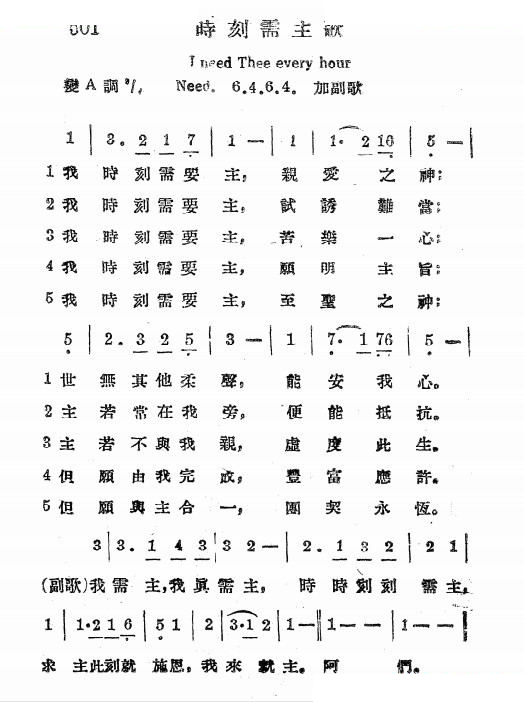 601 時刻需主歌
I need Thee every hour
變A調 3/4 Need. 6.4.6.4. 加副歌
1 | 3. 2 1 7 | 1 — | 1 | 1. 2 1 6 | 5 — |
1 我 時刻需要主, 親愛之神;
2 我 時刻需要主, 試誘難當;
3 我 時刻需要主, 苦樂一心;
4 我 時刻需要主, 願明主旨;
5 我 時刻需要主, 至聖之神;
5 | 2. 3 2 5 | 3 — | 1 | 7. 1 7 6 | 5 — |
1 世無其他柔聲, 能安我心。
2 主若常在我旁, 便能抵抗。
3 主若不與我親, 虛度此生。
4 但願由我完成, 豐富應許。
5 但願與主合一, 團契永恆。
3 | 3. 1 4 3 | 3 2 — | 2. 1 3 2 | 2 1 |
(副歌)我需主,我眞需主, 時時刻刻需主,
1 | 1. 2 1 6 | 5 1 | 2 | 3. 1 2 | 1 — ‖ 1 — — | 1 — — ‖
求主此刻就施恩, 我來就主。阿們。